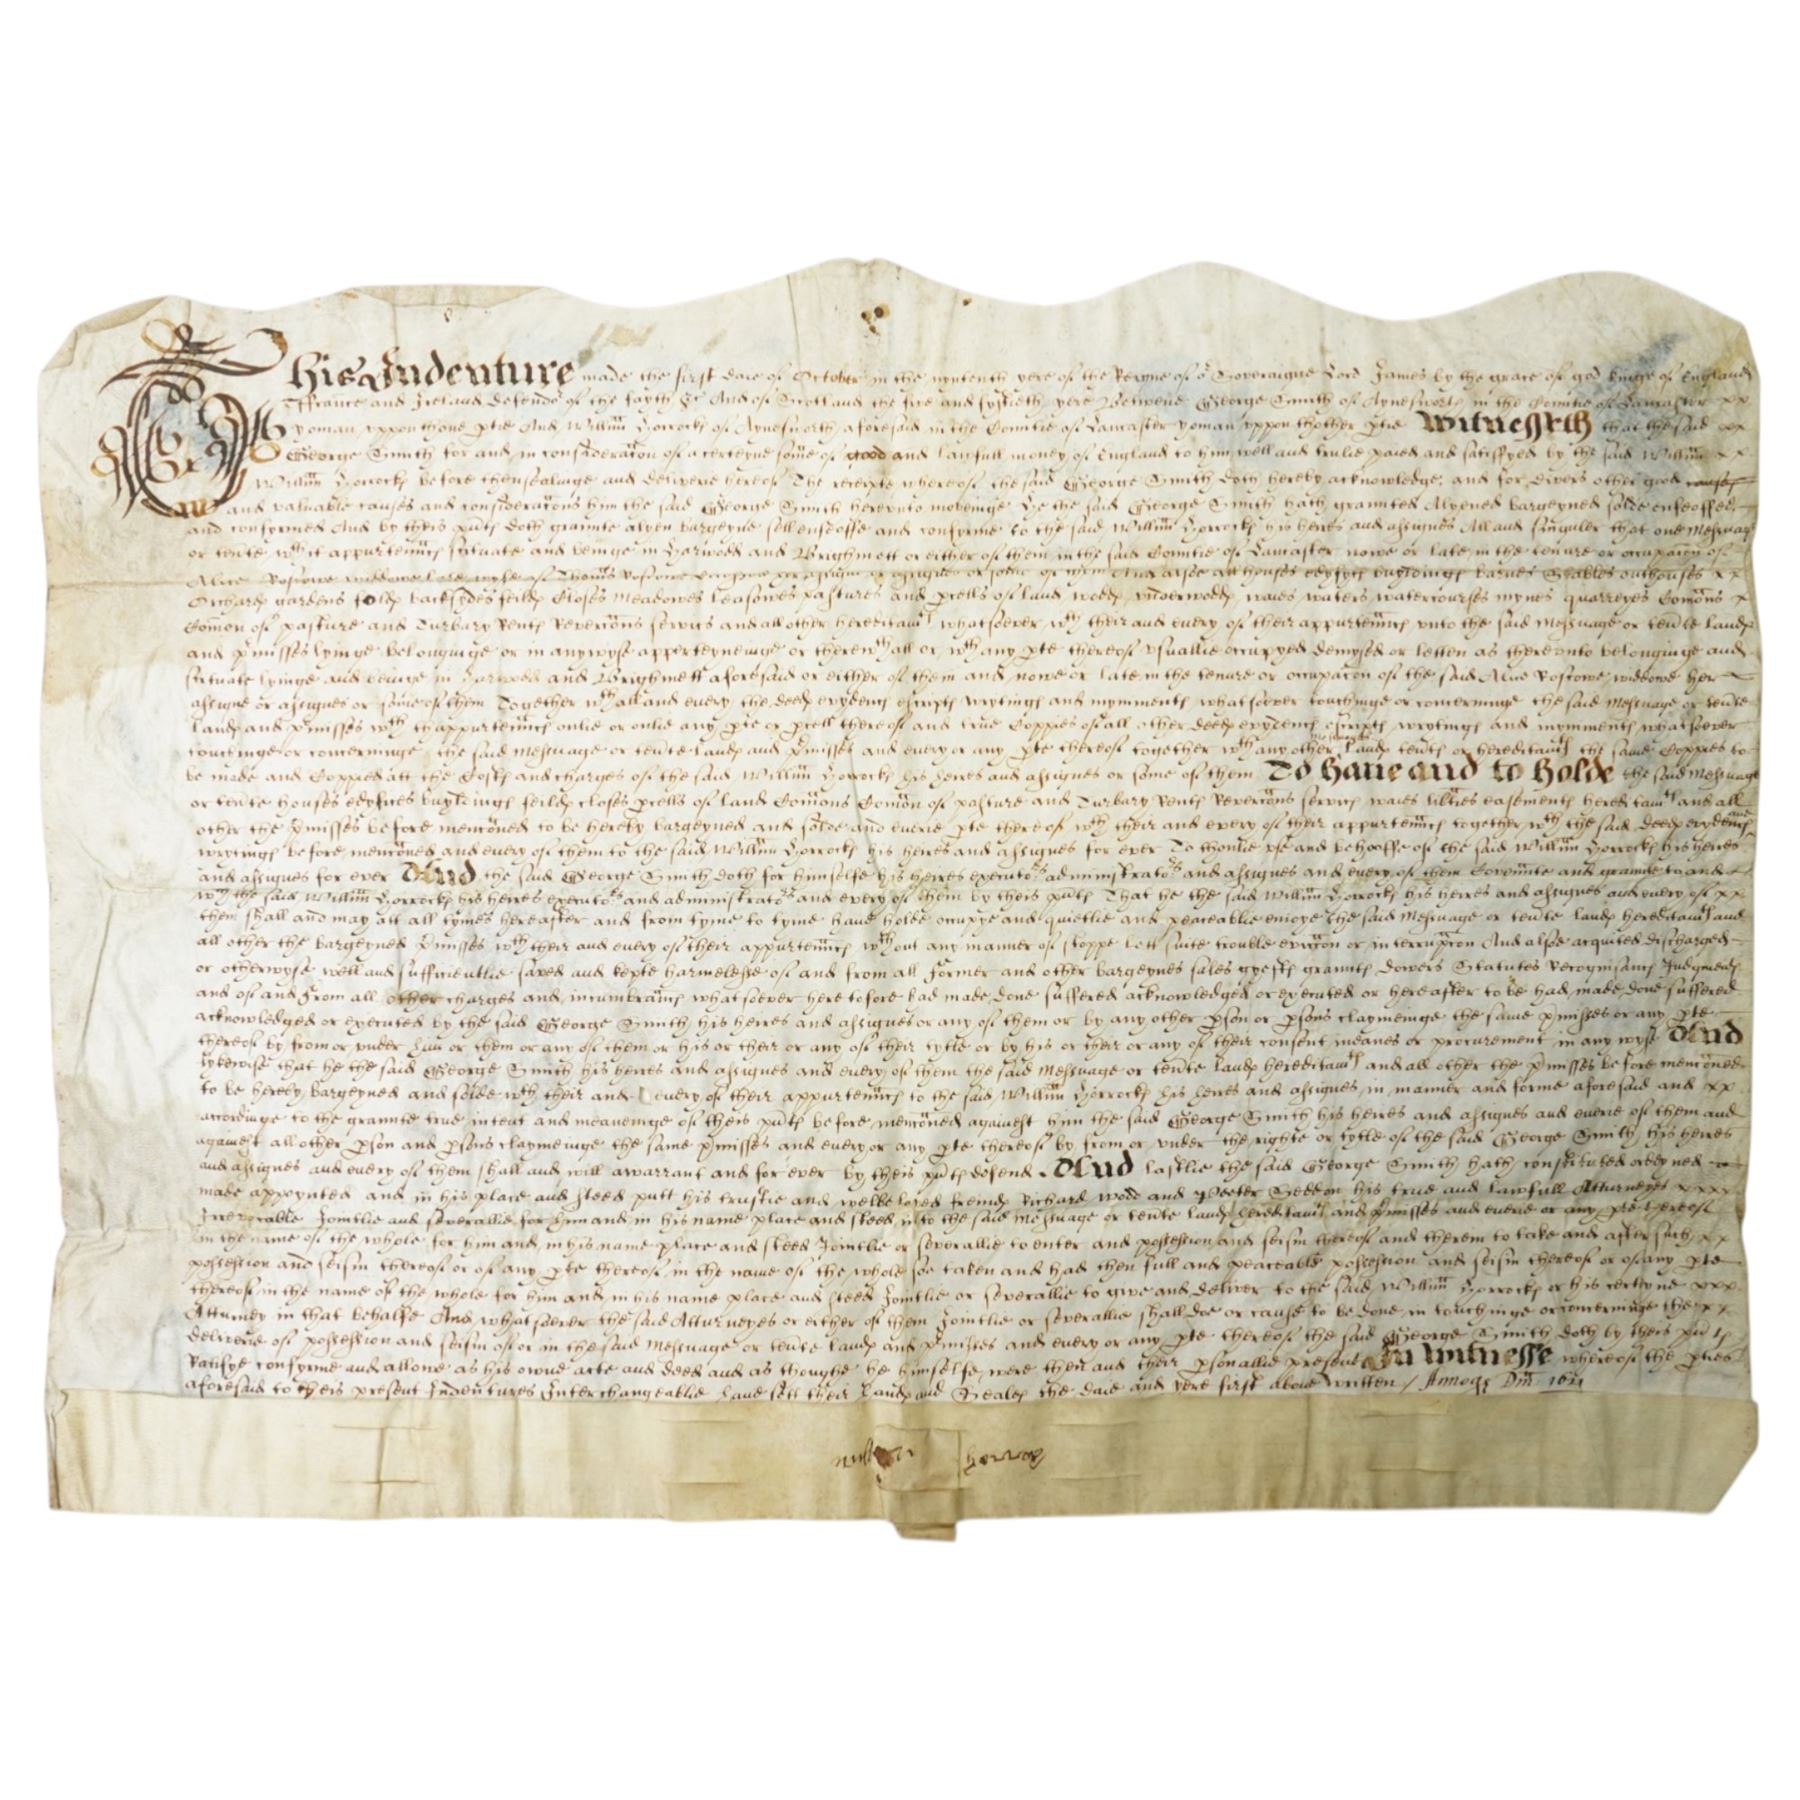 This Indenture made the first daie of October in the nyntenth yere of the Reigne of or Soveraigne Lord James by the grace of god Kinge of England
Ffrance and Ireland defendor of the fayth &c And of Scotland the five and fyftieth yere Betwene George Smith of Aynesworth in the Countie of Lancaster xx
yoman uppon thone ptie And Willm Horrocks of Aynesworth aforesaid in the Countie of Lancaster yoman uppon thother ptie Witnesseth that the said xx
George Smith for and in consideracon of a certeyne some of good and lawfull money of England to him well and trulie paied and satisfyed by the said Willm xx
Willm Horrocks before thensealinge and deliverie hereof The receipte whereof the said George Smith doth hereby acknowledge, and for divers other good causes
and valuable causes and consideracons him the said George Smith hereunto moveinge He the said George Smith hath graunted Alyened bargeyned solde enfeoffed
and confyrmed And by theis pnts doth graunte alyen bargeyne sell enfeoffe and confyrme to the said Willm Horrocks his heires and assignes All and singuler that one Messuage
or tente wth thappurtennces scituate and beinge in Harwood and Brighmett or either of them in the said Countie of Lancaster nowe or late in the tenure or occupacon of
Alice Roscowe widdowe late wyfe of Thomas Roscowe her assigne or assignes or some of them And alsoe all houses edyfyces buyldings barnes Stables outhouses xx
Orchards gardens folds backsydes feilds Closes Meadowes leasowes pastures and pcells of land woods underwoods waies waters watercourses mynes quarreyes Comons x
Comon of pasture and Turbary Rents Revercons servics and all other hereditamts whatsoever wth their and every of their appurtennces unto the said Messuage or tente lands
and pmisses lyinge belonginge or in anywyse apperteyneinge or therewthall or wth any pte thereof usuallie occupyed demysed or letten as thereunto belonginge and
scituate lyinge and beinge in Harwood and Brighmett aforesaid or either of them and nowe or late in the tenure or occupacon of the said Alice Roscowe widdowe her
assigne or assignes or some of them Together wth all and every the deeds evydencs escripts wrytings and mynments whatsoever touchinge or concerninge the said Messuage or tente
lands and pmisses wth thappurtennces onlie or onlie any pte or pcell thereof and true Coppies of all other deeds evydencs escripts wrytings and mynments whatsoever
touchinge or concerninge the said Messuage or tente lands and pmisses and every or any pte thereof together wth any other lands tents or hereditamts the same Coppies to
be made and Coppied att the Costs and charges of the said Willm Horrocks his heires and assignes or some of them To have and to holde the said Messuage
or tente houses edyfices buyldings feilds closes pcells of land Comons Comon of pasture and Turbary Rents Revercons servics waies libties easements hereditamts and all
other the pmisses before menconed to be hereby bargeyned and solde and everie pte thereof wth their and every of their appurtennces together wth the said deeds evydencs and
wrytings before menconed and every of them to the said Willm Horrocks his heires and assignes for ever To thonlie use and behooffe of the said Willm Horrocks his heires
and assignes for ever And the said George Smith doth for himselfe his heires executors administrators and assignes and every of them Covennte and graunte to and
wth the said Willm Horrocks his heires executors and administrators and every of them by theis pnts That he the said Willm Horrocks his heires and assignes and every of xx
them shall and may att all tymes hereafter and from tyme to tyme have holde occupye and quietlie and peaceablie enioye the said Messuage or tente lands hereditamts and
all other the bargeyned pmisses wth their and every of their appurtennces wthout any manner of stoppe lett suite trouble eviccon or interrupcon And alsoe acquited discharged
or otherwyse well and sufficientlie saved and kepte harmelesse of and from all former and other bargeynes sales gyefts graunts dowers Statutes Recognisancs Judgments
and of and from all other charges and incumbrancs whatsoever heretofore had made done suffered acknowledged or executed or hereafter to be had made done suffered
acknowledged or executed by the said George Smith his heires and assignes or any of them or by any other pson or psons claymeinge the same pmisses or any pte
thereof by from or under him or them or any of them or his or their or any of their tytle or by his or their or any of their consent meanes or procurement in any wyse And
lykewise that he the said George Smith his heires and assignes and every of them the said Messuage or tente lands hereditamts and all other the pmisses before menconed
to be hereby bargeyned and solde wth their and every of their appurtennces to the said Willm Horrocks his heires and assignes in manner and forme aforesaid and xx
accordinge to the graunte true intent and meaneinge of theis pnts before menconed against him the said George Smith his heires and assignes and everie of them and
against all other pson and psons claymeinge the same pmisses and every or any pte thereof by from or under the righte or tytle of the said George Smith his heires
and assignes and every of them shall and will awarrant and for ever by theis pnts defend. And lastlie the said George Smith hath constituted ordeyned
made appoynted and in his place and steed putt his trustie and welbeloved freinds Richard Wodd and Peeter Seddon his true and lawfull Atturneyes xxxx
Irrevocable Jointlie and severallie for him and in his name place and steed into the said Messuage or tente lands hereditamts and pmisses and everie or any pte thereof
in the name of the whole for him and in his name place and steed Jointlie or severallie to enter and possession and seisin thereof and therein to take and after such xx
possession and seisin thereof or of any pte thereof in the name of the whole soe taken and had then full and peaceable possession and seisin thereof or of any pte
thereof in the name of the whole for him and in his name place and steed Jointlie or severallie to give and deliver to the said Willm Horrocks or his certyne xxx
Atturney in that behalfe And whatsoever the said Atturneyes or either of them Jointlie or severallie shall doe or cause to be done in touchinge or concerninge the xx
deliverie of possession and seisin of or in the said Messuage or tente lands and pmisses and every or any pte thereof the said George Smith doth by theis pnts
Ratifye confyrme and allowe as his owne acte and deed and as thoughe he himselfe were then and their psonallie present In Witnesse whereof the pties
aforesaid to theis present Indentures Interchangeablie have sett their hands and Seales the daie and yere first above written / Annoqz Dni 1621
horrox